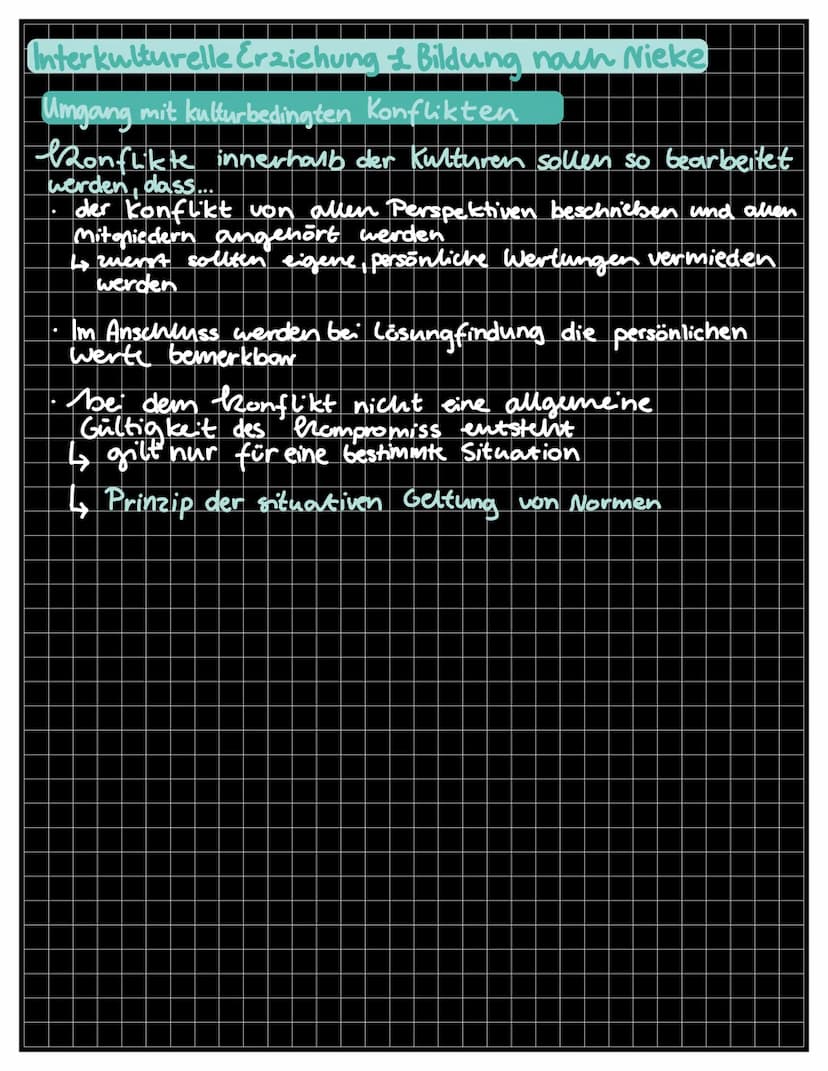 Interkulturelle Erziehung & Bildung nach Nieke
Umgang mit kulturbedingten Konflikten
Konflikte innerhalb der Kulturen sollen so bearbeitet
werden, dass...
· der Konflikt von allen Perspektiven beschrieben und allen
Mitgliedern angehört werden
↳ zuerst sollten eigene, persönliche Wertungen vermieden
werden
· Im Anschluss werden bei Lösungfindung die persönlichen
Werte bemerkbar
· bei dem Konflikt nicht eine allgemeine
Gültigkeit des Kompromiss entsteht
↳ gilt nur für eine bestimmte Situation
↳ Prinzip der situativen Geltung von Normen